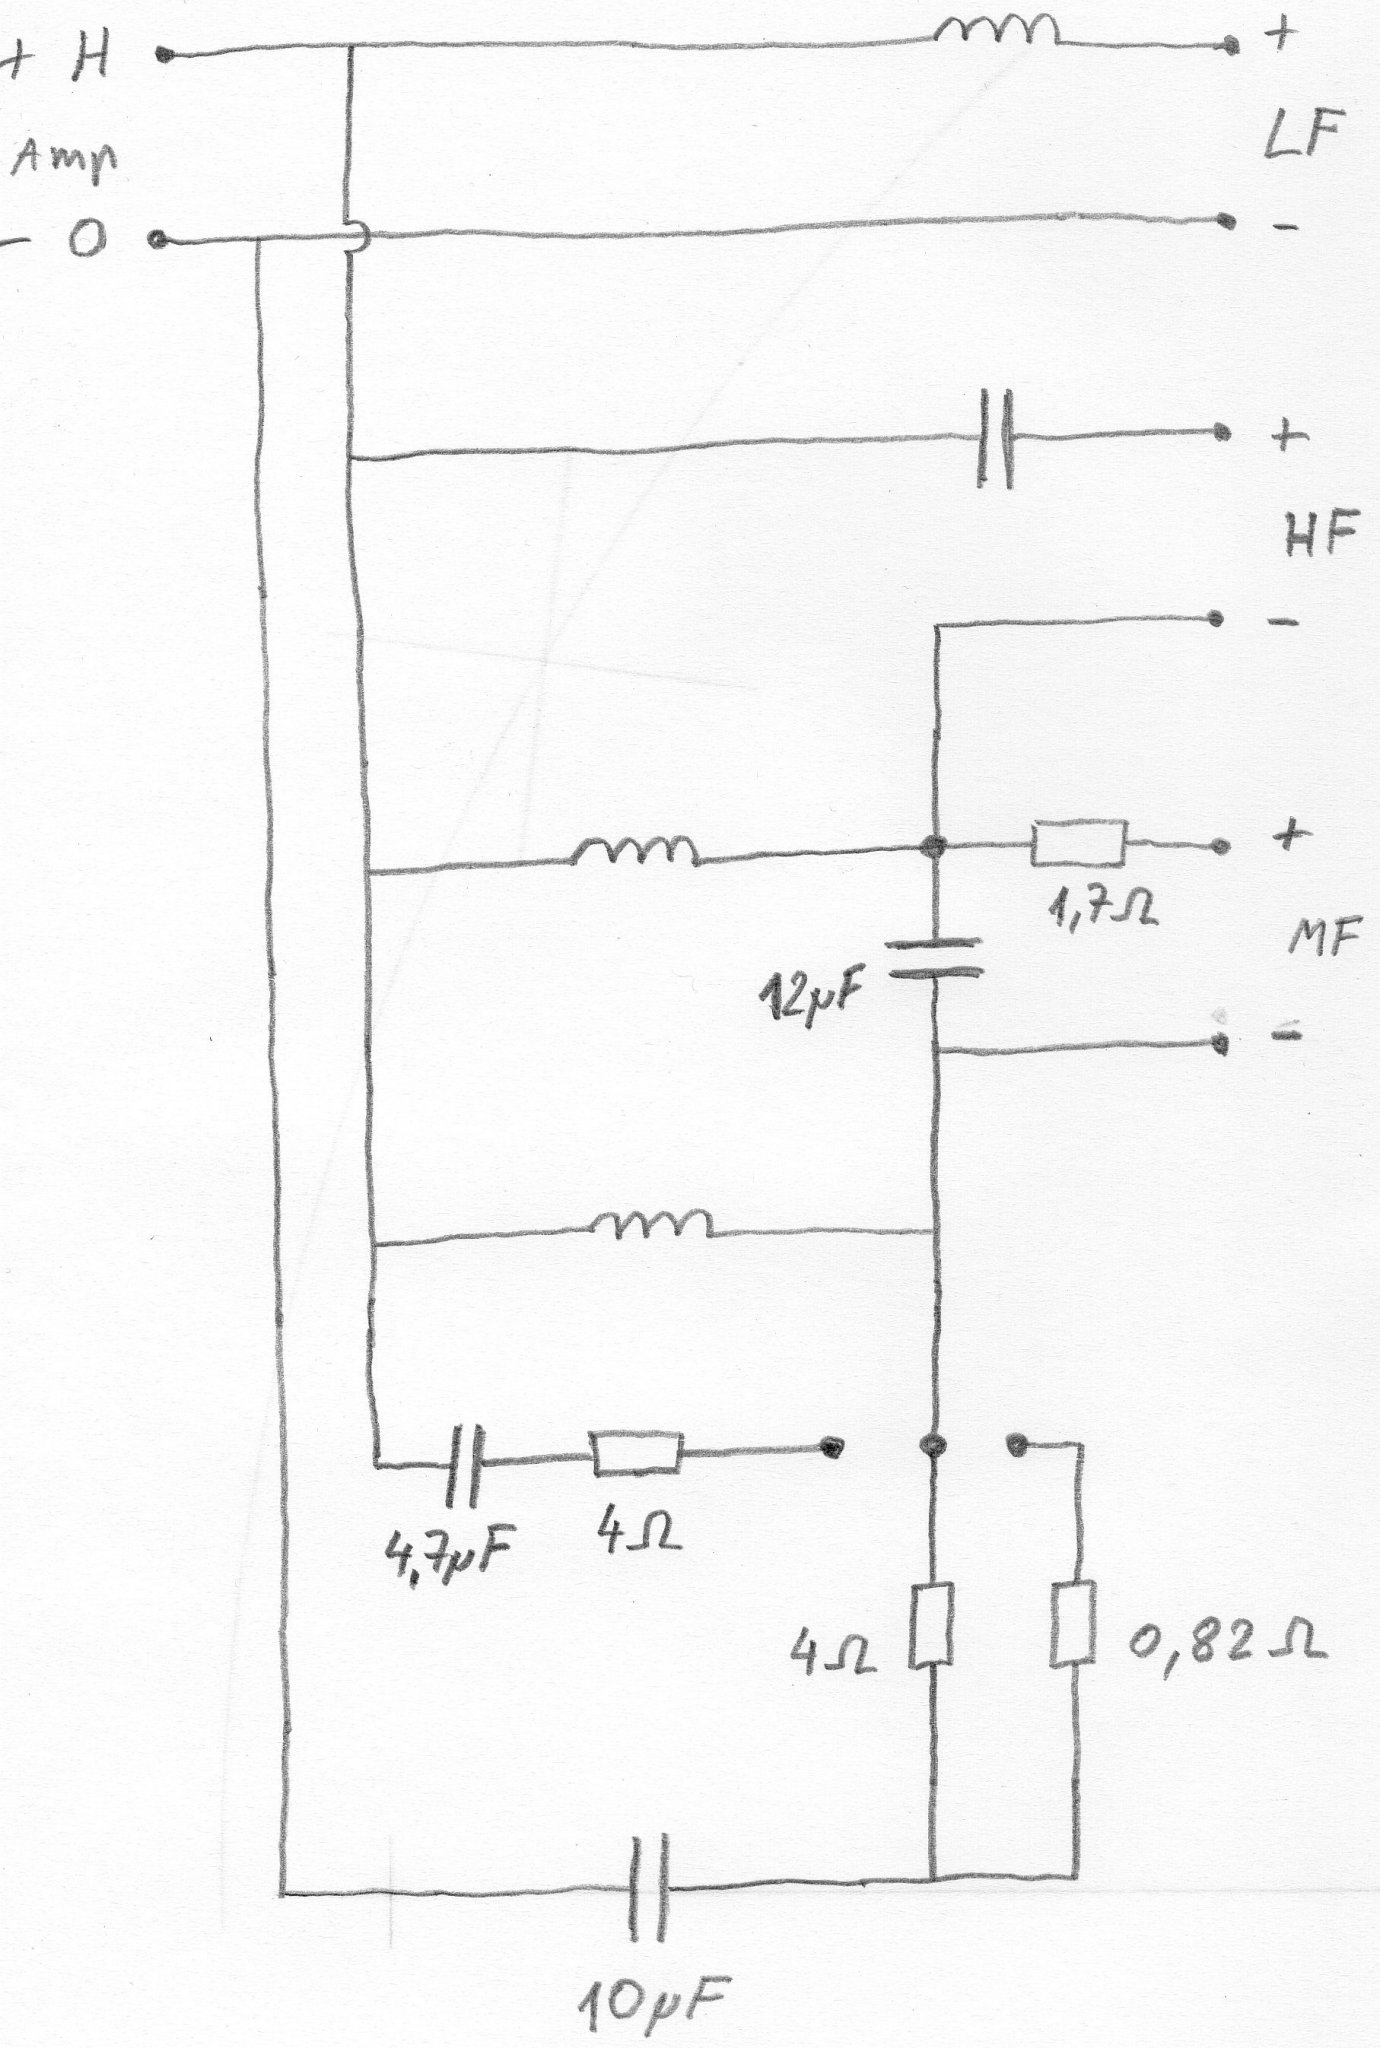 + H
+
Amp
LF
- O
-
+
HF
-
+
1,7Ω
MF
12µF
-
4,7µF
4Ω
4Ω
0,82Ω
10µF